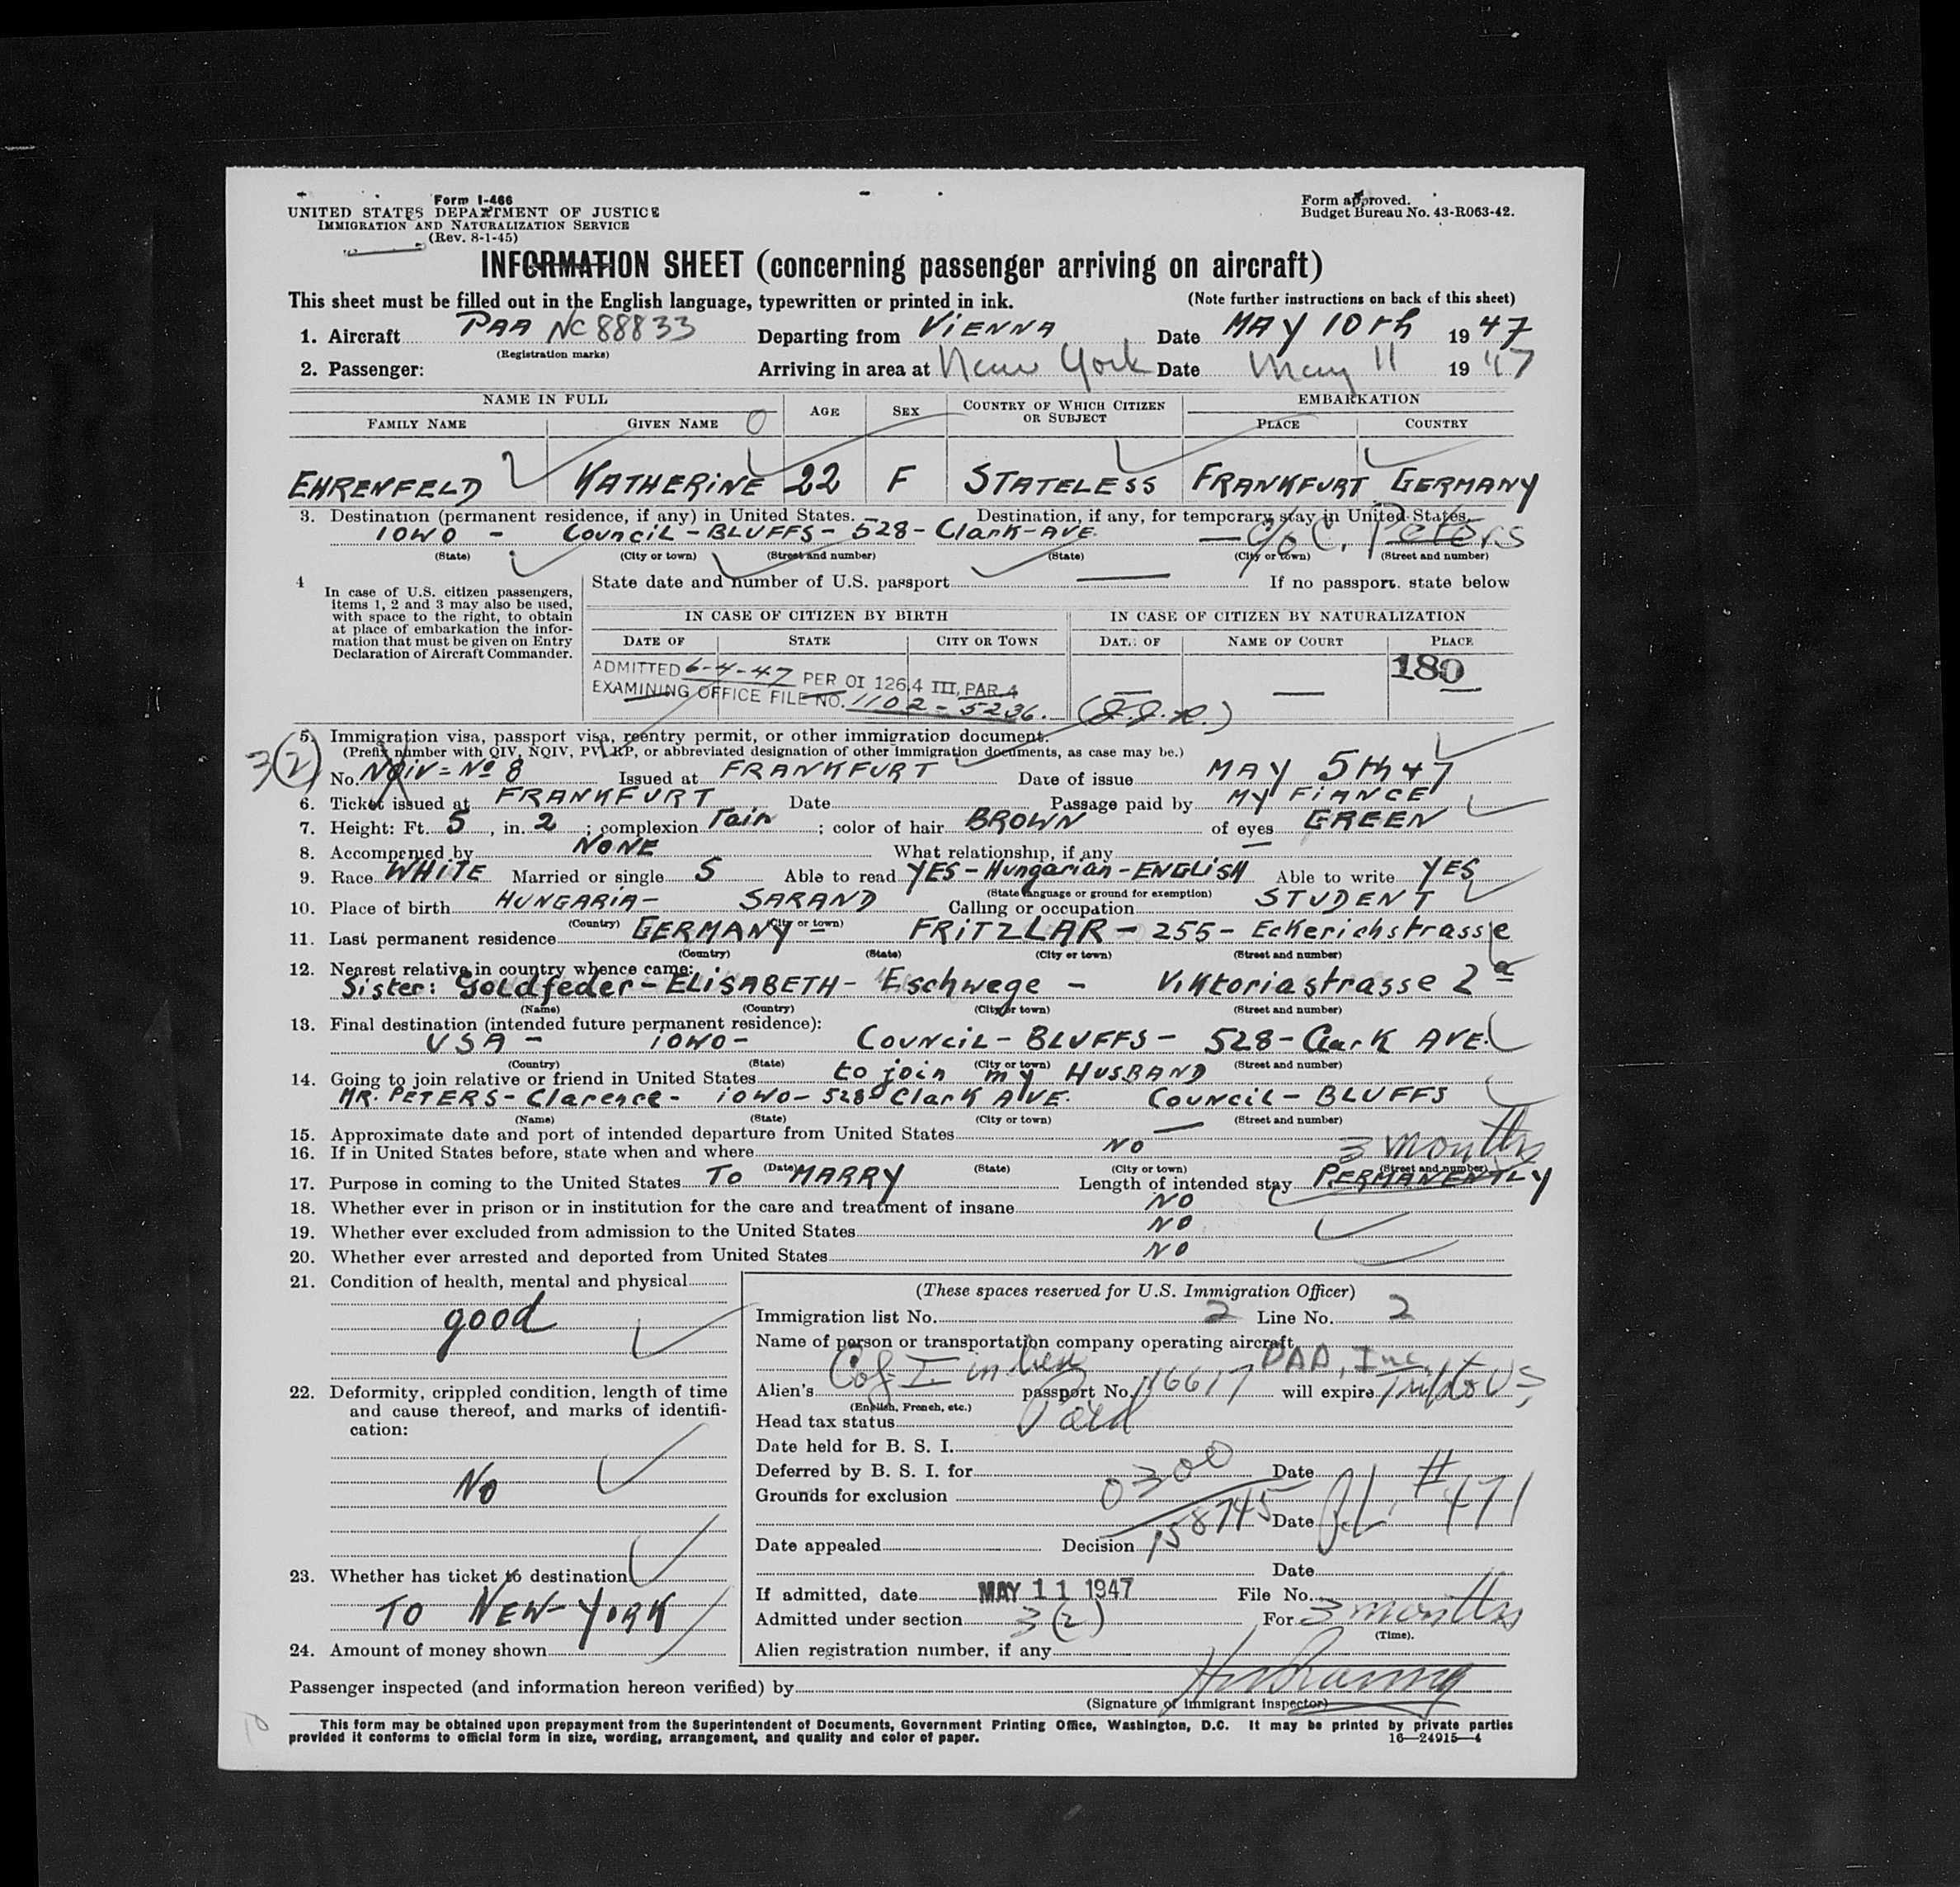 Form I-466
UNITED STATES DEPARTMENT OF JUSTICE
IMMIGRATION AND NATURALIZATION SERVICE
(Rev. 8-1-45)
Form approved.
Budget Bureau No. 43-R063-42.
INFORMATION SHEET (concerning passenger arriving on aircraft)
This sheet must be filled out in the English language, typewritten or printed in ink. (Note further instructions on back of this sheet)
1. Aircraft PAA NC 88833 Departing from VIENNA Date MAY 10th 1947
(Registration marks)
2. Passenger: Arriving in area at New York Date May 11 1947
NAME IN FULL AGE SEX COUNTRY OF WHICH CITIZEN OR SUBJECT EMBARKATION
FAMILY NAME GIVEN NAME PLACE COUNTRY
EHRENFELD KATHERINE 22 F STATELESS FRANKFURT GERMANY
3. Destination (permanent residence, if any) in United States. Destination, if any, for temporary stay in United States.
IOWO - COUNCIL - BLUFFS - 528 - Clark - AVE. - c/o C. Peters
(State) (City or town) (Street and number) (State) (City or town) (Street and number)
4 In case of U.S. citizen passengers, items 1, 2 and 3 may also be used, with space to the right, to obtain at place of embarkation the information that must be given on Entry Declaration of Aircraft Commander.
State date and number of U.S. passport If no passport. state below
IN CASE OF CITIZEN BY BIRTH IN CASE OF CITIZEN BY NATURALIZATION
DATE OF STATE CITY OR TOWN DATE OF NAME OF COURT PLACE
180
ADMITTED 6-4-47 PER OI 126.4 III, PAR. 4
EXAMINING OFFICE FILE NO. 1102-5236.
5. Immigration visa, passport visa, reentry permit, or other immigration document.
(Prefix number with QIV, NQIV, PV, RP, or abbreviated designation of other immigration documents, as case may be.)
3(2)
No. NQIV = No 8 Issued at FRANKFURT Date of issue MAY 5th 47
6. Ticket issued at FRANKFURT Date Passage paid by MY FIANCE
7. Height: Ft. 5, in. 2; complexion Fair; color of hair BROWN of eyes GREEN
8. Accompenied by NONE What relationship, if any
9. Race WHITE Married or single S Able to read YES - Hungarian - ENGLISH Able to write YES
(State language or ground for exemption)
10. Place of birth HUNGARIA - SARAND Calling or occupation STUDENT
(Country) (City or town)
11. Last permanent residence GERMANY - FRITZLAR - 255 - Eckerichstrasse
(Country) (State) (City or town) (Street and number)
12. Nearest relative in country whence came:
Sister: Goldfeder - ELISABETH - Eschwege - Viktoriastrasse 2 a
(Name) (Country) (City or town) (Street and number)
13. Final destination (intended future permanent residence):
USA - IOWO - COUNCIL - BLUFFS - 528 - Clark AVE.
(Country) (State) (City or town) (Street and number)
14. Going to join relative or friend in United States to join my HUSBAND
MR. PETERS - Clarence - IOWO - 528 Clark AVE. COUNCIL - BLUFFS
(Name) (State) (City or town) (Street and number)
15. Approximate date and port of intended departure from United States
16. If in United States before, state when and where NO 3 months
(Date) (State) (City or town) (Street and number)
17. Purpose in coming to the United States TO MARRY Length of intended stay PERMANENTLY
18. Whether ever in prison or in institution for the care and treatment of insane NO
19. Whether ever excluded from admission to the United States NO
20. Whether ever arrested and deported from United States NO
21. Condition of health, mental and physical
good
22. Deformity, crippled condition, length of time and cause thereof, and marks of identification:
No
23. Whether has ticket to destination
TO NEW-YORK
24. Amount of money shown
(These spaces reserved for U.S. Immigration Officer)
Immigration list No. 2 Line No. 2
Name of person or transportation company operating aircraft PAA, Inc.
Cof I in lieu
Alien's passport No. will expire
(English, French, etc.)
Head tax status Paid
Date held for B. S. I.
Deferred by B. S. I. for 0300 Date
Grounds for exclusion
158745 Date # 471
Date appealed Decision
Date
If admitted, date MAY 11 1947 File No.
Admitted under section 3(2) For 3 months
(Time).
Alien registration number, if any
Passenger inspected (and information hereon verified) by
(Signature of immigrant inspector)
This form may be obtained upon prepayment from the Superintendent of Documents, Government Printing Office, Washington, D.C. It may be printed by private parties
provided it conforms to official form in size, wording, arrangement, and quality and color of paper. 16—24915—4